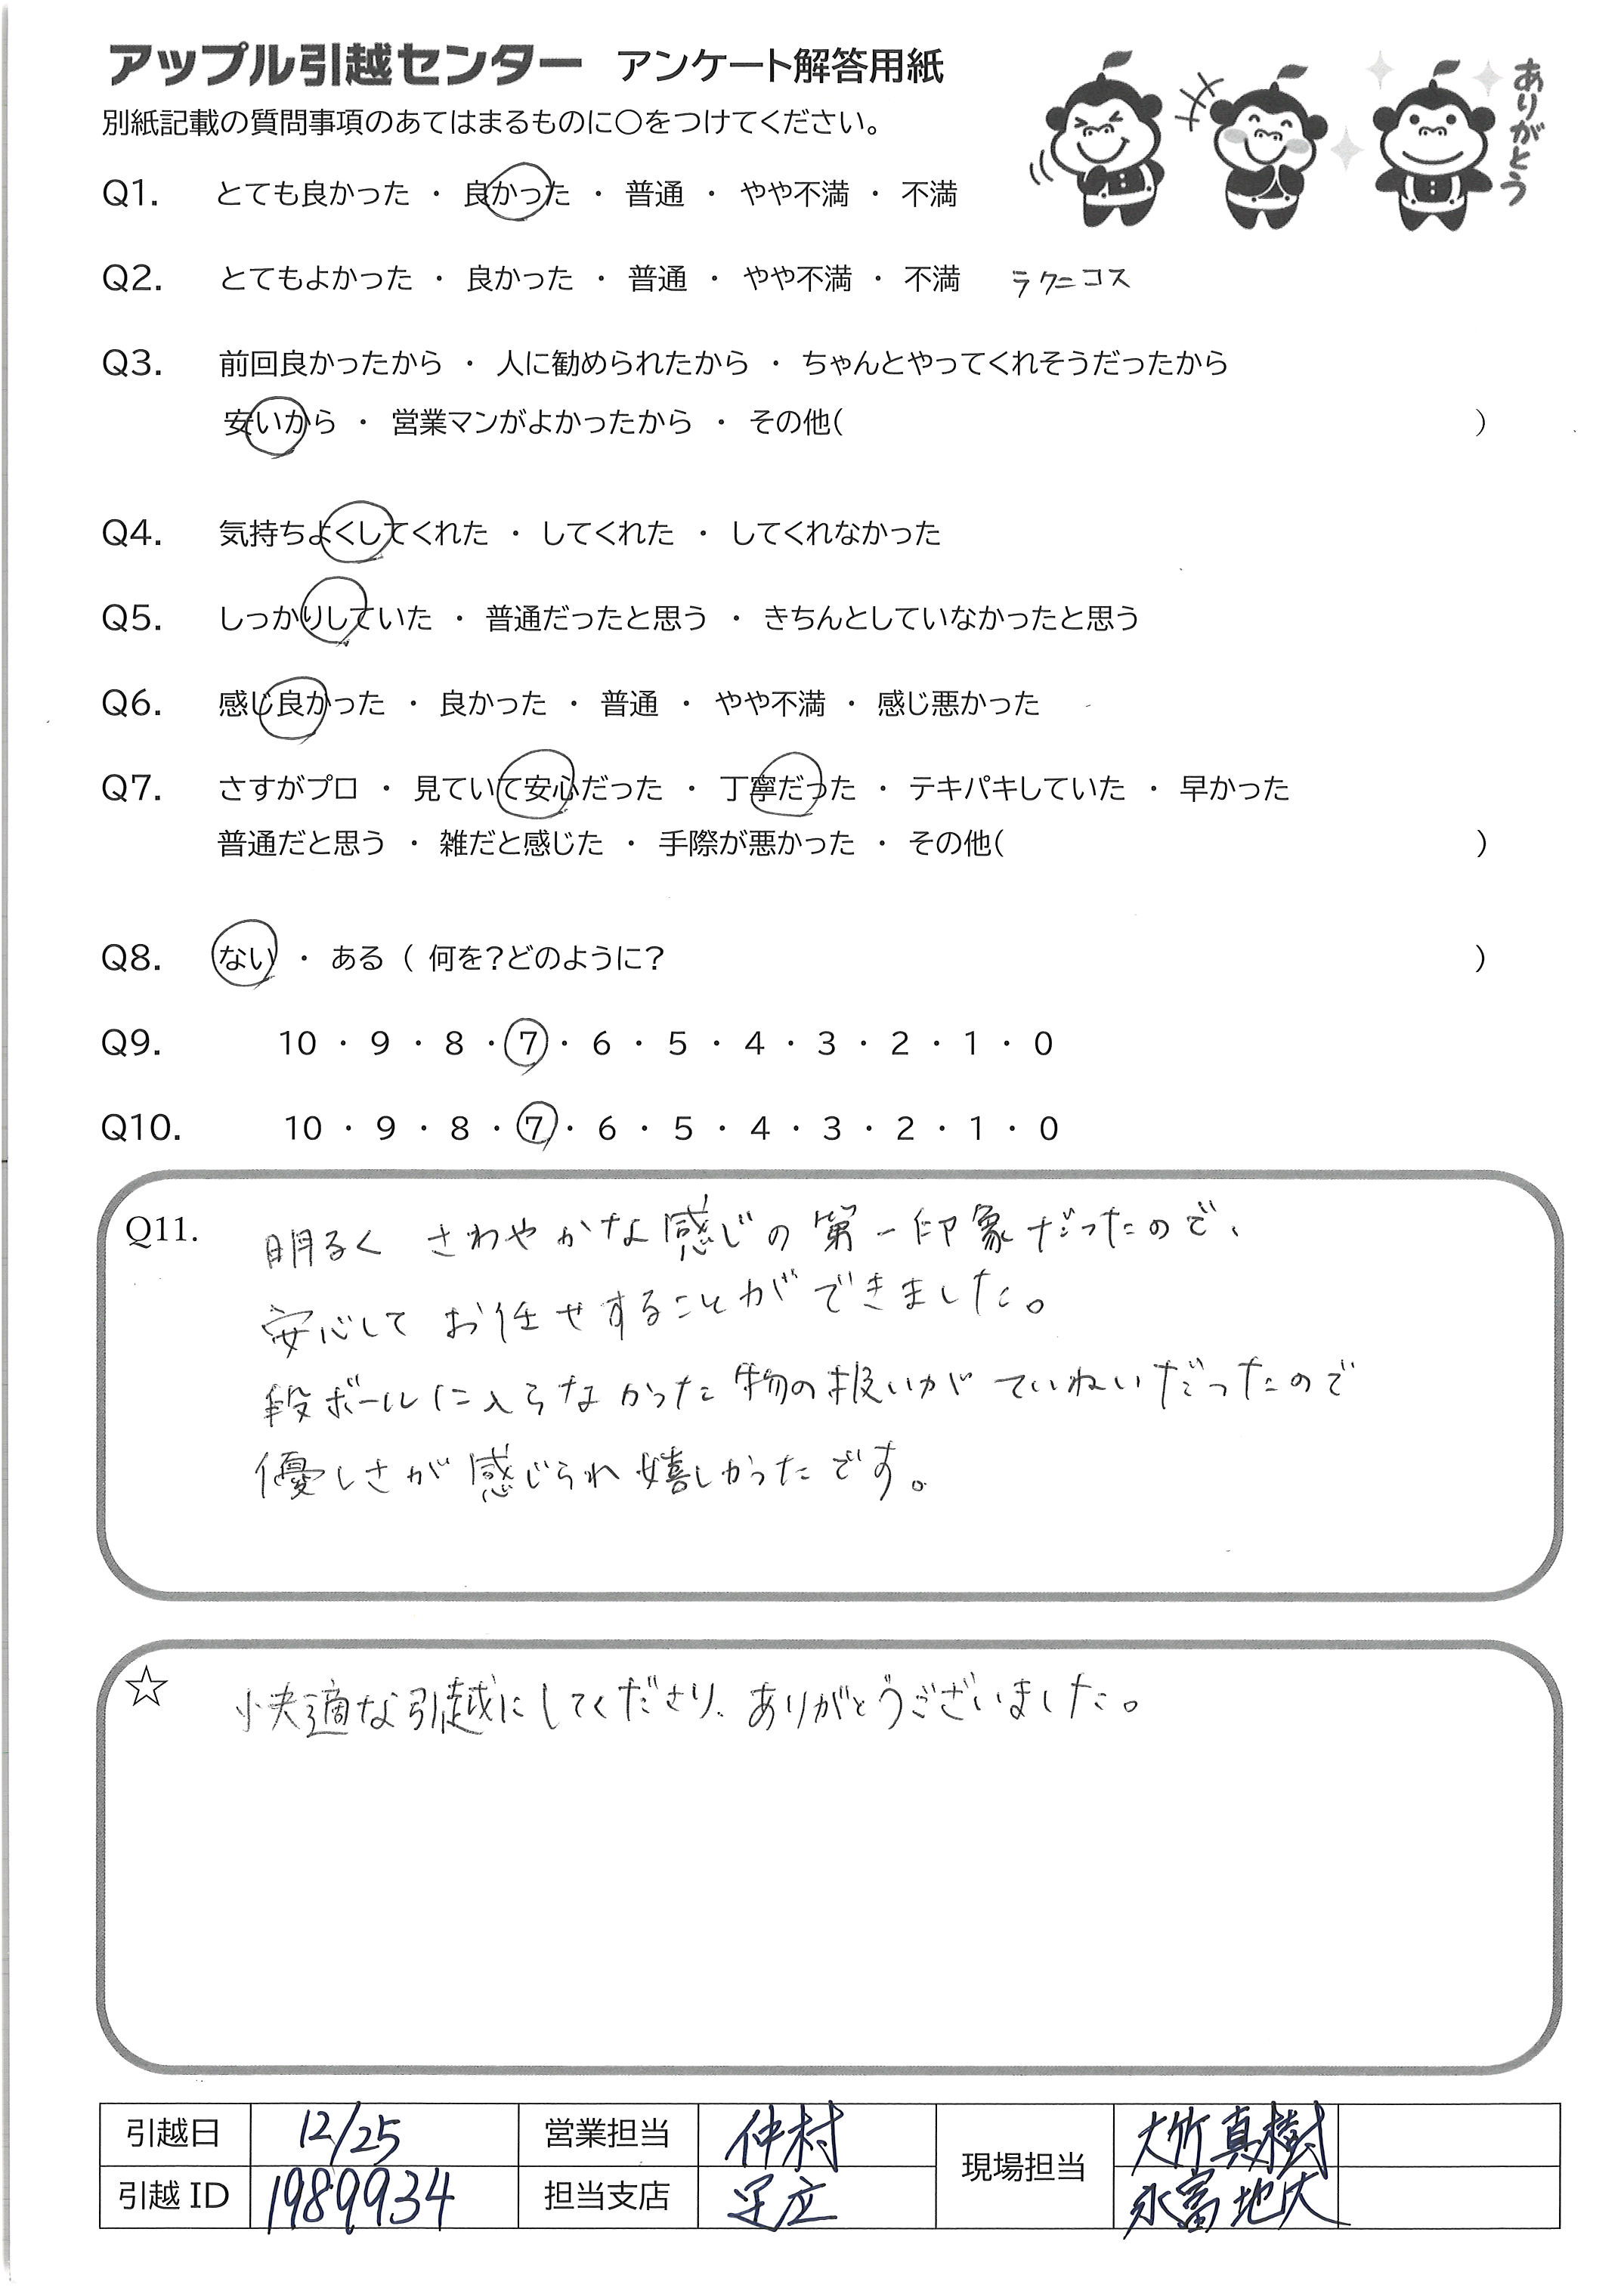 アップル引越センター アンケート解答用紙
ありがとう
別紙記載の質問事項のあてはまるものに○をつけてください。
Q1. とても良かった ・ 良かった ・ 普通 ・ やや不満 ・ 不満
Q2. とてもよかった ・ 良かった ・ 普通 ・ やや不満 ・ 不満 ラクニコス
Q3. 前回良かったから ・ 人に勧められたから ・ ちゃんとやってくれそうだったから
安いから ・ 営業マンがよかったから ・ その他( )
Q4. 気持ちよくしてくれた ・ してくれた ・ してくれなかった
Q5. しっかりしていた ・ 普通だったと思う ・ きちんとしていなかったと思う
Q6. 感じ良かった ・ 良かった ・ 普通 ・ やや不満 ・ 感じ悪かった
Q7. さすがプロ ・ 見ていて安心だった ・ 丁寧だった ・ テキパキしていた ・ 早かった
普通だと思う ・ 雑だと感じた ・ 手際が悪かった ・ その他( )
Q8. ない ・ ある ( 何を?どのように? )
Q9. 10 ・ 9 ・ 8 ・ 7 ・ 6 ・ 5 ・ 4 ・ 3 ・ 2 ・ 1 ・ 0
Q10. 10 ・ 9 ・ 8 ・ 7 ・ 6 ・ 5 ・ 4 ・ 3 ・ 2 ・ 1 ・ 0
Q11. 明るく さわやかな感じの第一印象だったので、
安心して お任せすることができました。
段ボールに入らなかった物の扱いが ていねいだったので
優しさが感じられ嬉しかったです。
☆ 快適な引越にしてくださり、ありがとうございました。
引越日 12/25 営業担当 仲村 現場担当 大竹真樹
引越ID 1989934 担当支店 足立 永富地大